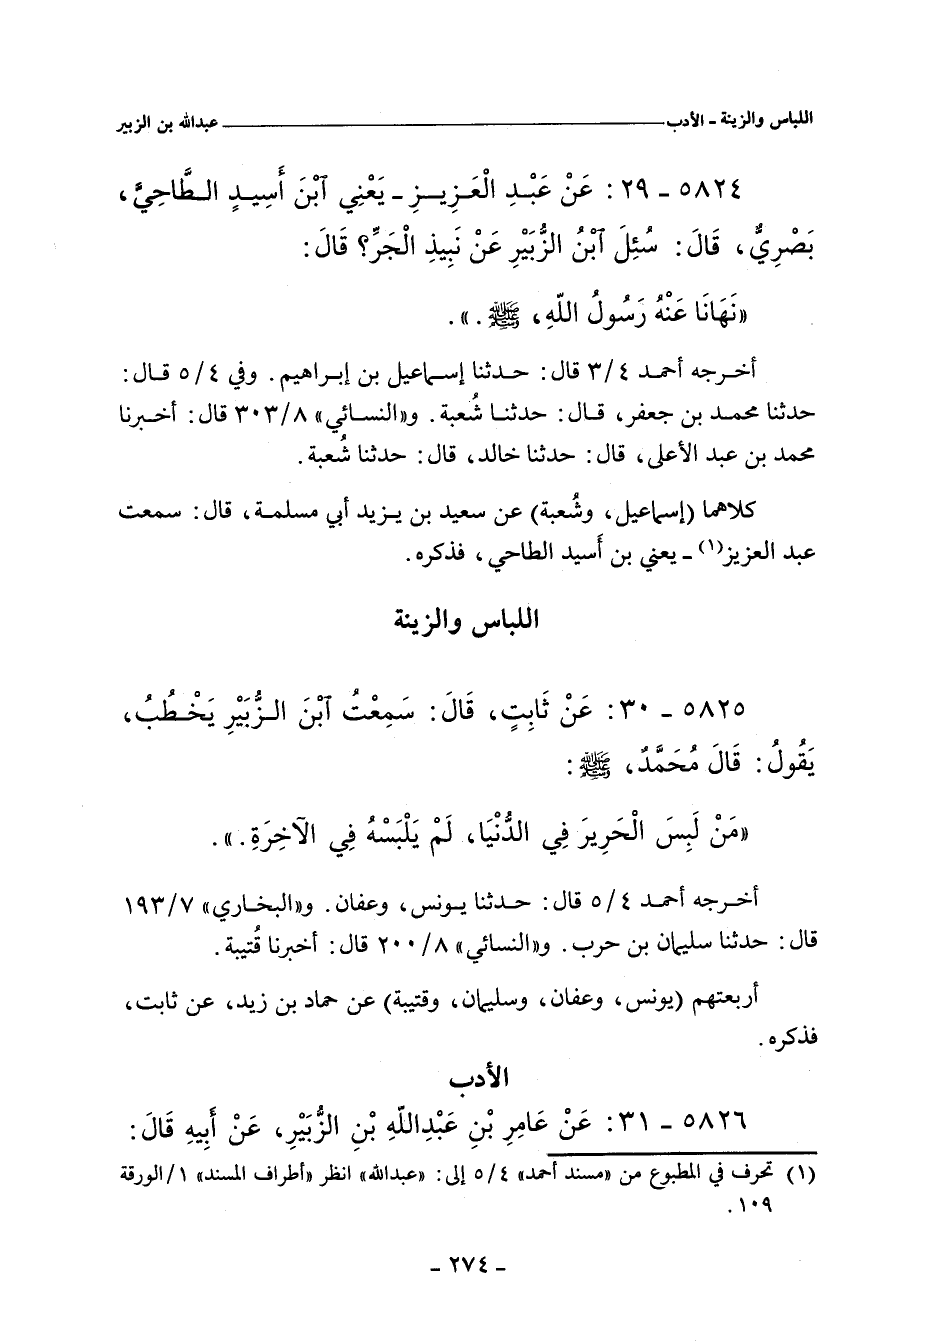 اللباس والزينة ـ الأدب ـــــــــــــــــــــ عبدالله بن الزبير
٥٨٢٤ ـ ٢٩ : عَنْ عَبْدِ الْعَزِيزِ ـ يَعْنِي آبْنَ أَسِيدٍ الطَّاحِيَّ ،
بَصْرِيٌّ ، قَالَ : سُئِلَ آبْنُ الزُّبَيْرِ عَنْ نَبِيذِ الْجَرِّ؟ قَالَ :
«نَهَانَا عَنْهُ رَسُولُ اللّهِ ، ﷺ .» .
أخرجه أحمد ٣/٤ قال : حدثنا إسماعيل بن إبراهيم . وفي ٥/٤ قال :
حدثنا محمد بن جعفر ، قال : حدثنا شُعبة . و«النسائي» ٣٠٣/٨ قال : أخبرنا
محمد بن عبد الأعلى ، قال : حدثنا خالد ، قال : حدثنا شُعبة .
كلاهما (إسماعيل ، وشُعبة) عن سعيد بن يزيد أبي مسلمة ، قال : سمعت
عبد العزيز(١) ـ يعني بن أَسيد الطاحي ، فذكره .
اللباس والزينة
٥٨٢٥ ـ ٣٠ : عَنْ ثَابِتٍ ، قَالَ : سَمِعْتُ آبْنَ الزُّبَيْرِ يَخْطُبُ ،
يَقُولُ : قَالَ مُحَمَّدٌ ، ﷺ :
«مَنْ لَبِسَ الْحَرِيرَ فِي الدُّنْيَا ، لَمْ يَلْبَسْهُ فِي الآخِرَةِ .» .
أخرجه أحمد ٥/٤ قال : حدثنا يونس ، وعفان . و«البخاري» ١٩٣/٧
قال : حدثنا سليمان بن حرب . و«النسائي» ٢٠٠/٨ قال : أخبرنا قُتيبة .
أربعتهم (يونس ، وعفان ، وسليمان ، وقتيبة) عن حماد بن زيد ، عن ثابت ،
فذكره .
الأدب
٥٨٢٦ ـ ٣١ : عَنْ عَامِرِ بْنِ عَبْدِاللّهِ بْنِ الزُّبَيْرِ ، عَنْ أَبِيهِ قَالَ :
(١) تحرف في المطبوع من «مسند أحمد» ٥/٤ إلى : «عبدالله» انظر «أطراف المسند» ١/الورقة
١٠٩ .
ـ ٢٧٤ ـ